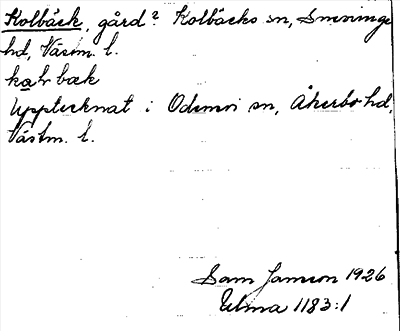 Kolbäck, gård? Kolbäcks sn, Snevringe
hd, Västm. l.
kɑlbæk
Upptecknat i Odensvi sn, Åkerbo hd,
Västm. l.
Sam Jansson 1926
Ulma 1183:1